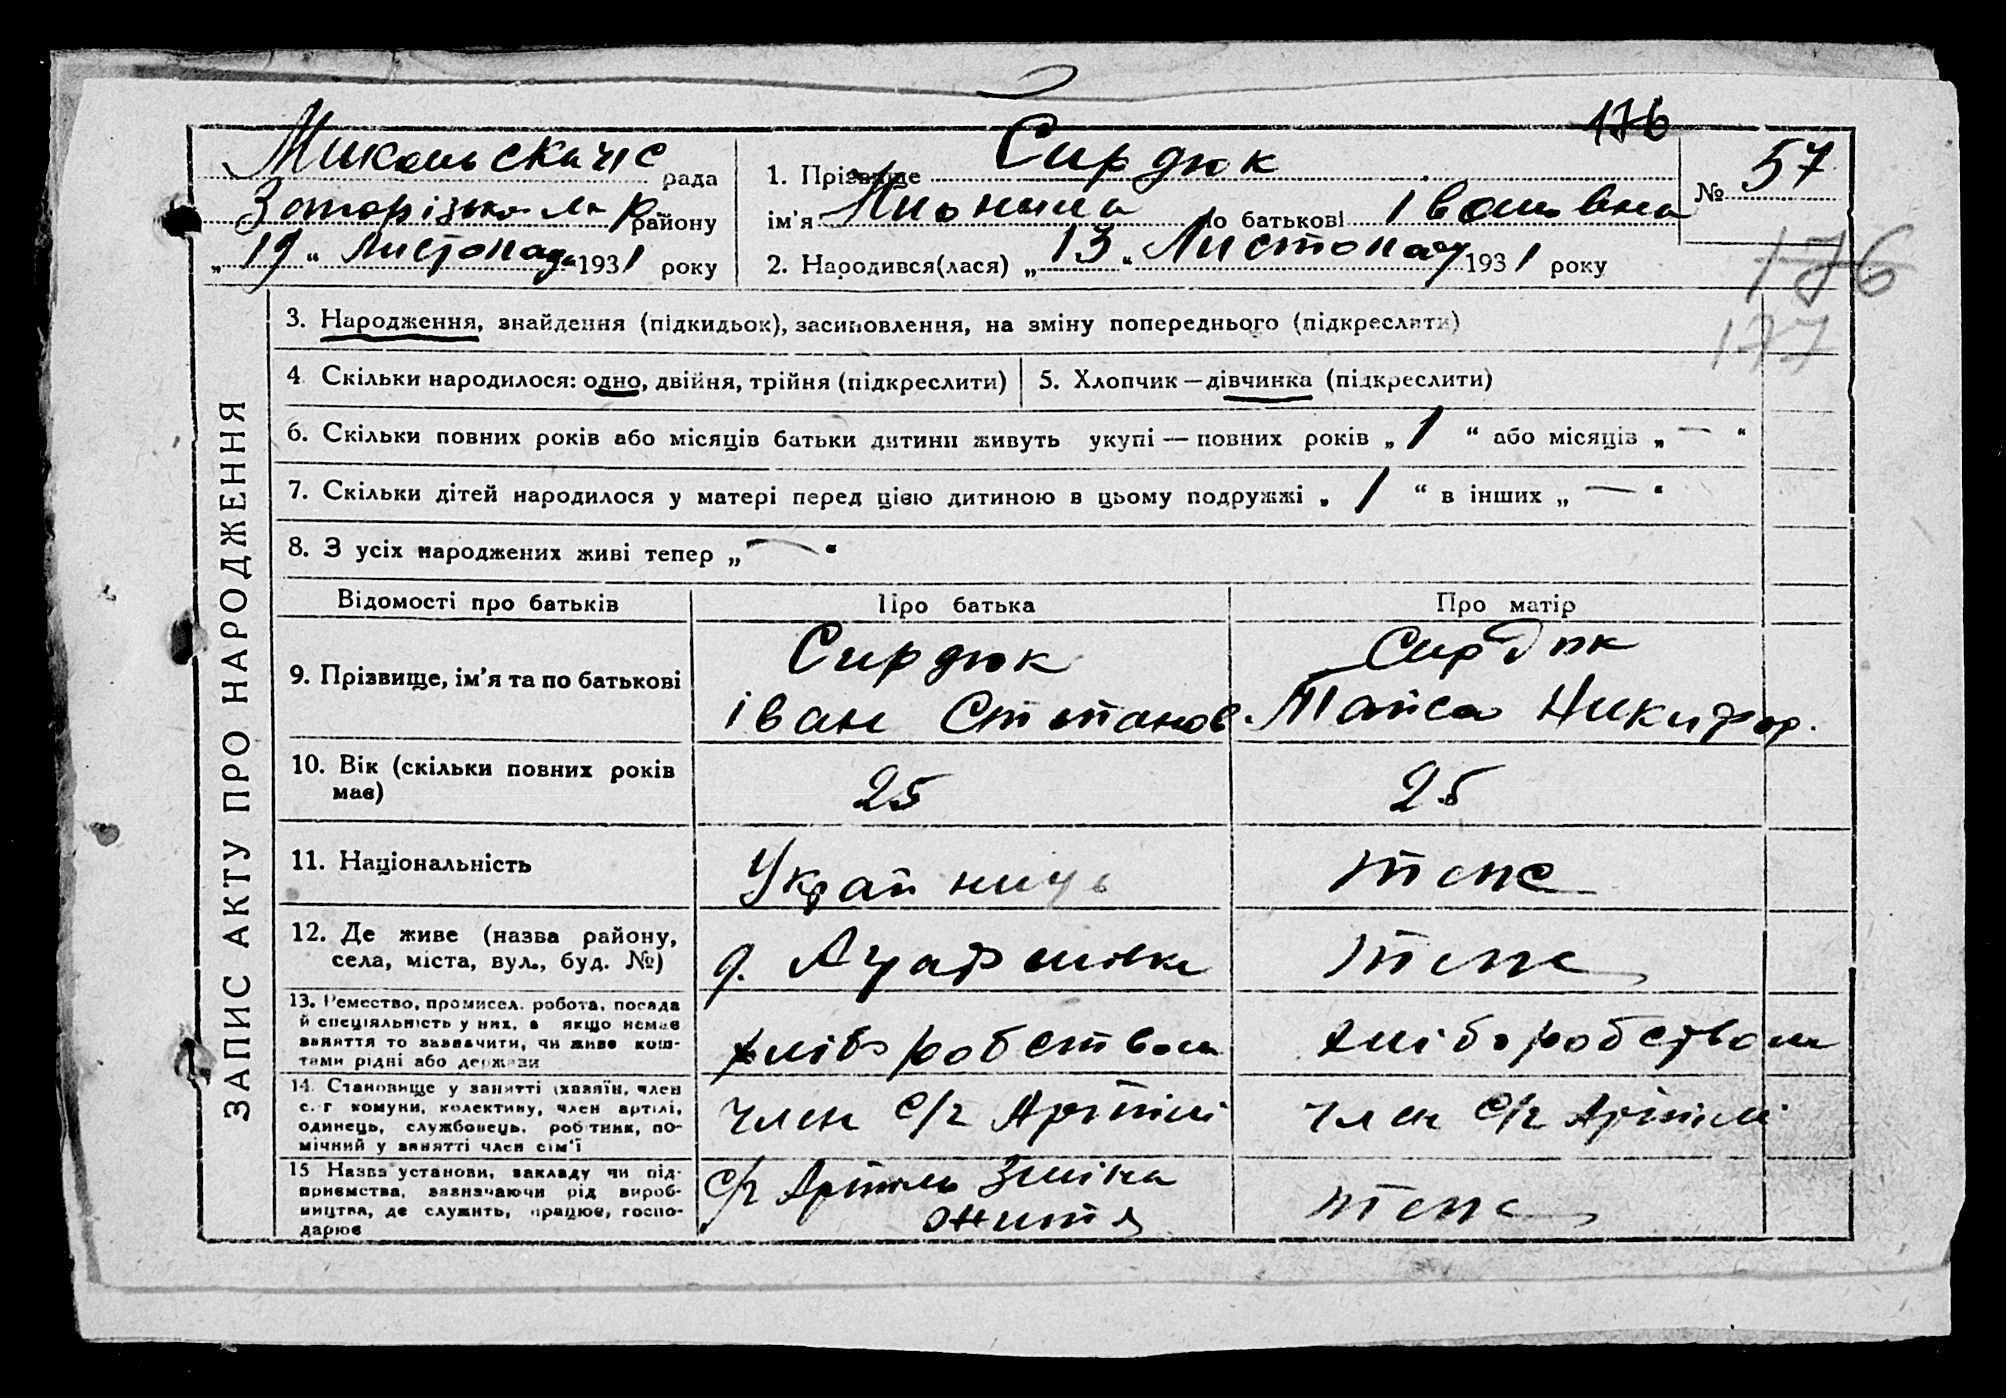 176
Микольська чіс рада
Запорізького р району
„19“ Листопада 1931 року
1. Прізвище Сирдюк
ім'я по батькові Івановна
№ 57
2. Народився(лася) „13“ Листопад 1931 року
176
177
ЗАПИС АКТУ ПРО НАРОДЖЕННЯ
3. Народження, знайдення (підкидьок), засиновлення, на зміну попереднього (підкреслити)
4. Скільки народилося: одно, двійня, трійня (підкреслити)
5. Хлопчик — дівчинка (підкреслити)
6. Скільки повних років або місяців батьки дитини живуть укупі — повних років „1“ або місяців „—“
7. Скільки дітей народилося у матері перед цією дитиною в цьому подружжі „1“ в інших „—“
8. З усіх народжених живі тепер „—“
Відомості про батьків Про батька Про матір
9. Прізвище, ім'я та по батькові
Сирдюк
Іван Степанов
Сирдюк
Таїса Никифор.
10. Вік (скільки повних років
має)
25 25
11. Національність
Українць теж
12. Де живе (назва району,
села, міста, вул., буд. №)
теж
13. Ремество, промисел. робота, посада
й спеціяльність у них, а якщо немає
заняття то зазначити, чи живе кош-
тами рідні або держави
хліборобством хліборобством
14. Становище у занятті (хазяїн, член
с.-г комуни, колективу, член артілі,
одинець, службовець, робітник, по-
мічний у занятті член сім'ї
член С/г Артілі член С/г Артілі
15 Назва установи, закладу чи під-
приємства, зазначаючи рід вироб-
ництва, де служить, працює, госпо-
дарює
С/г Артіль Зміна
життя
теж